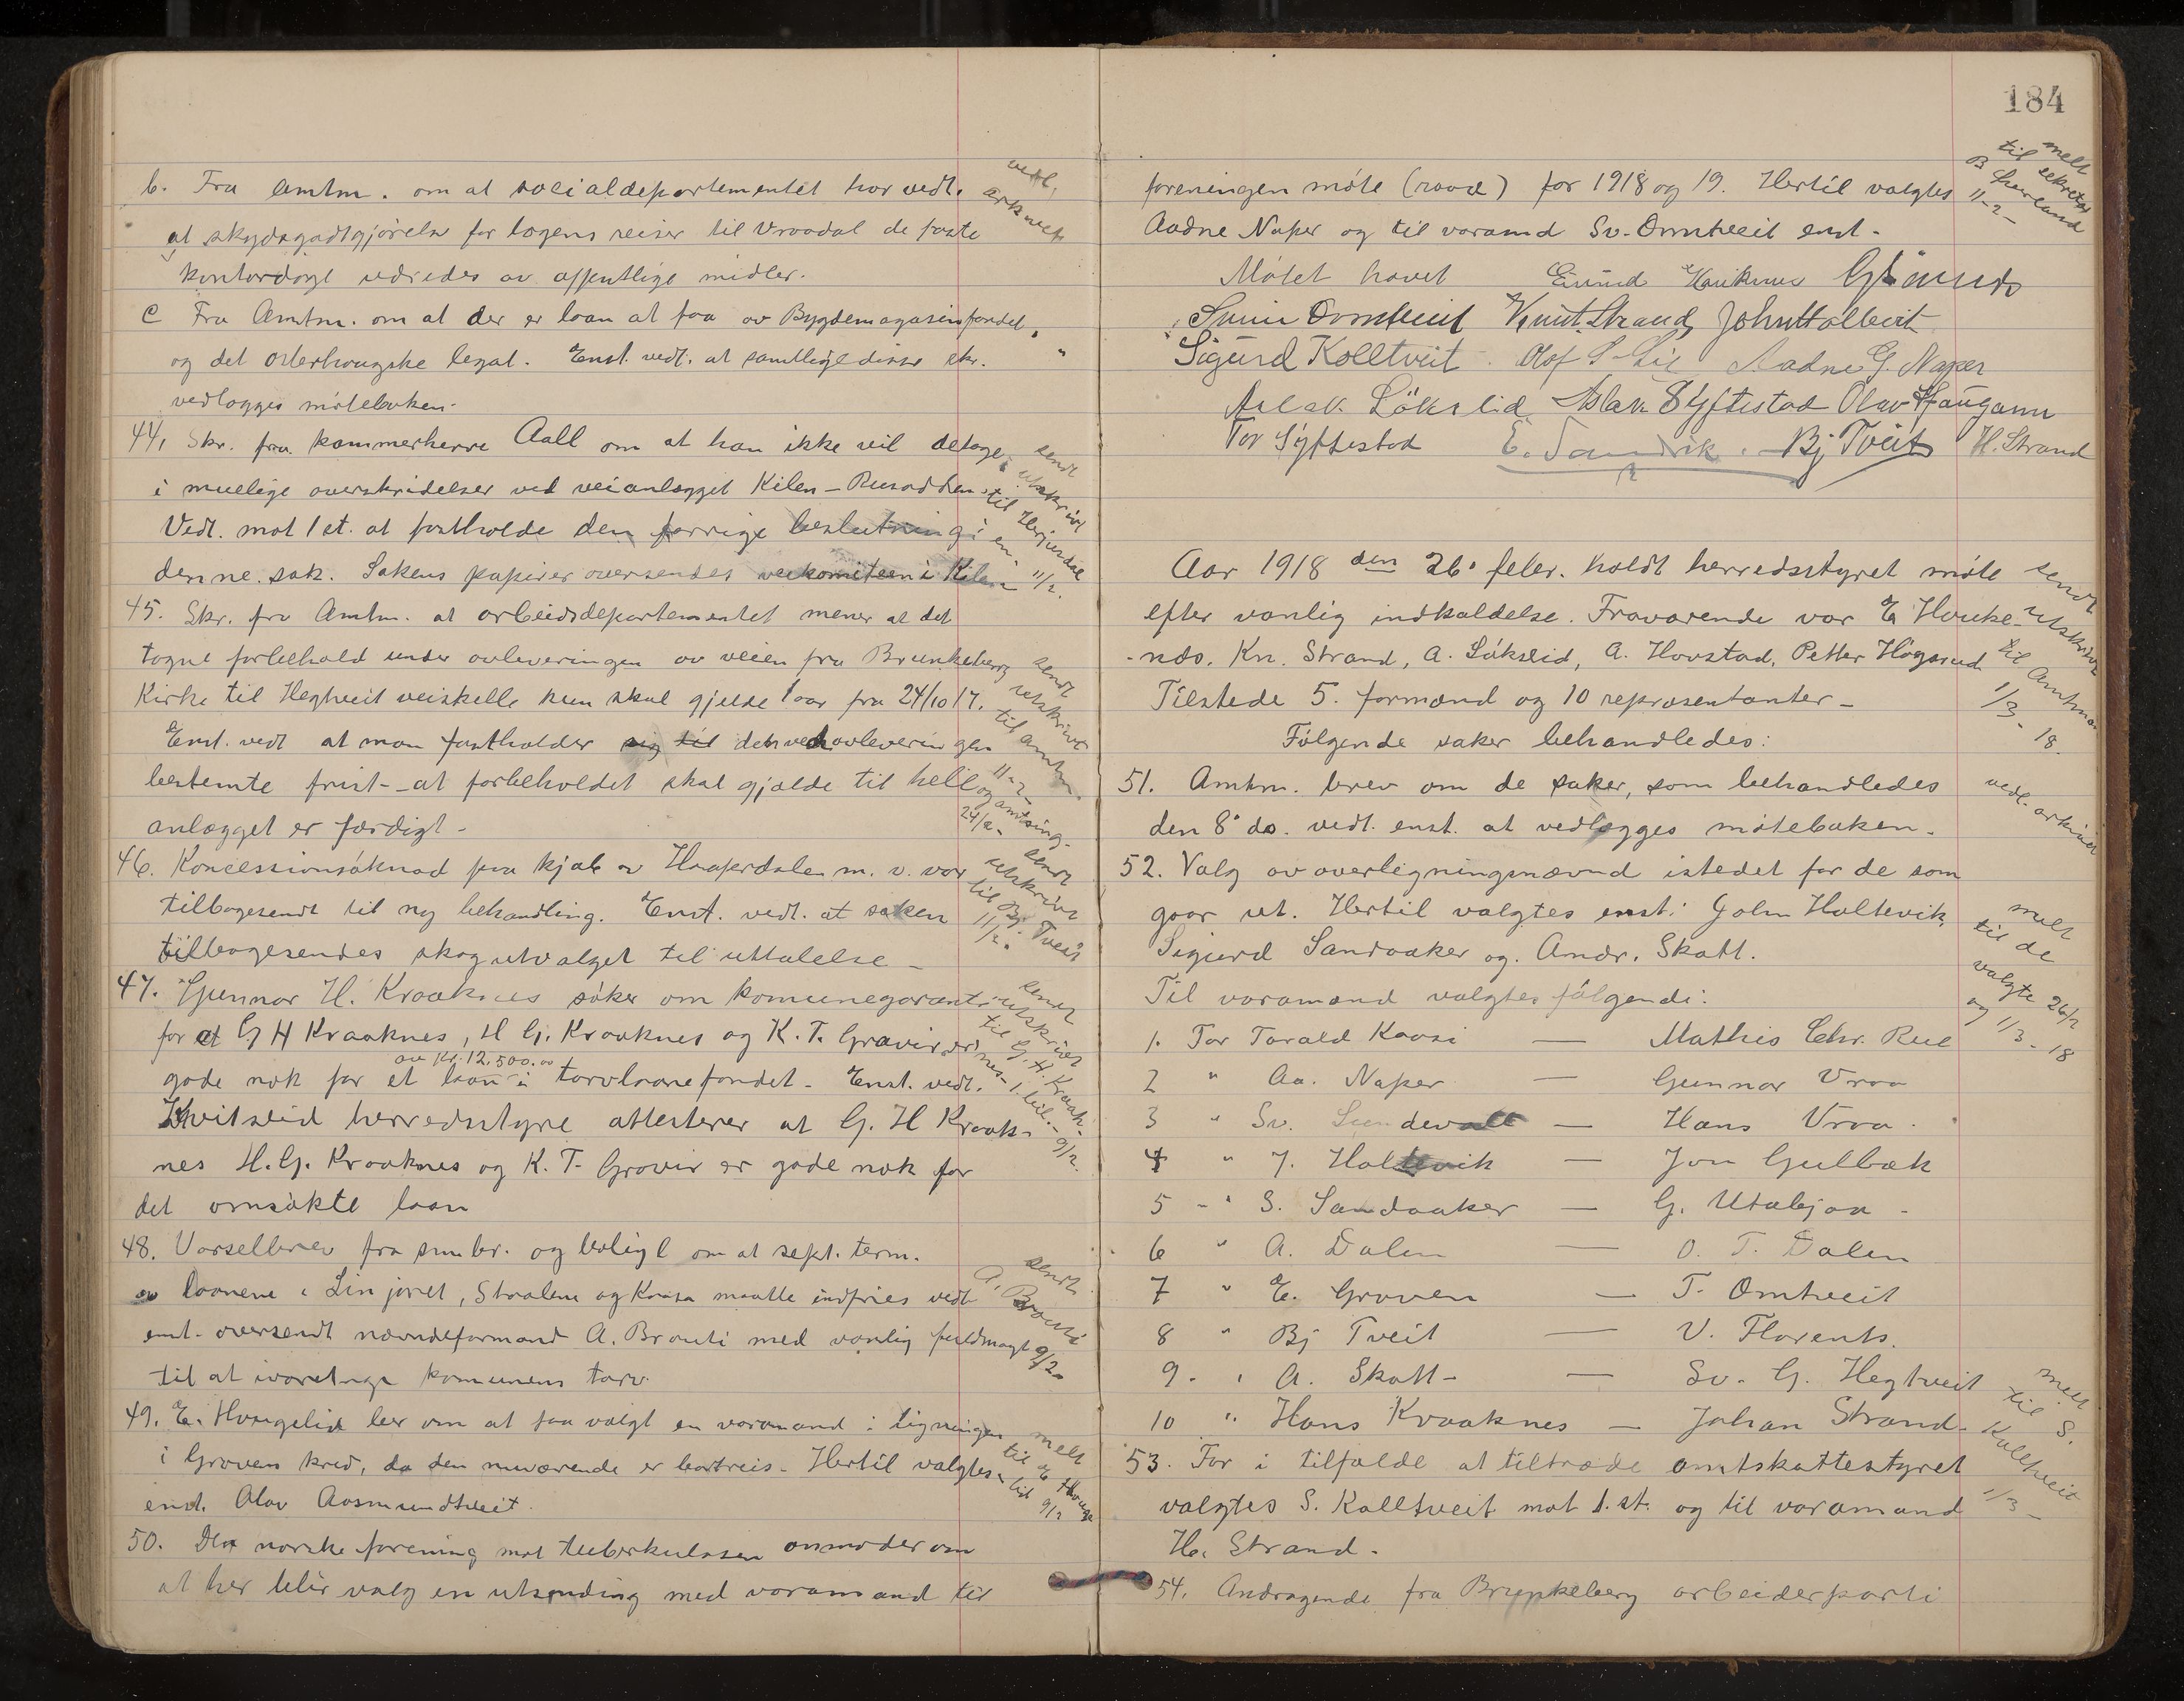 b. Fra amtm. om at socialdepartementet har vedt.
at skydsgodtgjörelse for lægens reiser til Vraadal de faste
kontordage utredes av offentlige midler.
vedl. arkivet
c Fra Amtm. om at der er laan at faa av Bygdemagasinfondet
og det legat. Enst. vedt. at samtlige disse skr.
vedlægges möteboken.
"
44, Skr. fra kammerherre Aall om at han ikke vil deltage
i mulige overskridelser ved veianlægget Kilen – Rusodden.
Vedt. mot 1 st. at fastholde den forrige beslutning i
denne sak. Sakens papirer oversendes veikomiteen i Kilen
sendt utskrivt til 11/2.
45. Skr. fra Amtm. at arbeidsdepartementet mener at det
tagne forbehold under avleveringen av veien fra Brunkeberg
Kirke til Hegtveit veiskille kun skal gjelde 1 aar fra 24/10 17.
Enst. vedt at man fastholder sig til den ved avleveringen
bestemte frist – at forbeholdet skal gjælde til hele
anlægget er færdigt –
sendt utskrivt til amtm. 11-2- og amtsing. 24/2-
46. Koncessionsöknad paa kjöb av Haaperdalen m. v. var
tilbagesendt til ny behandling. Enst. vedt. at saken
tilbagesendes skogutvalget til uttalelse –
sendt utskrivt til Bj. Tveit 11/2.
47. Gunnar H. Kraaknes söker om komunegaranti
for at G H Kraaknes, H G. Kraaknes og K. T. Gravir er
av Kr. 12,500.00
gode nok for et laan i torvlaanefondet – Enst. vedt.
Kvitseid herredsstyre attesterer at G. H Kraak-
nes H. G. Kraaknes og K. T. Grovir er gode nok for
det omsökte laan
sendt utskrivt til G. H. Kraak-nes – 1. bil. – 9/2.
48. Varselbrev fra smbr. og boligl om at sept. term.
av laanene i Linjoret, Straalene og Kaasa maatte indfries vedt
enst. oversendt nævndeformand A. Brauti med vanlig fuldmagt
til at ivaretage komunens tarv.
sendt A. Brauti 9/2-
49. E. Haugelid ber om at faa valgt en varamand i ligningen
i Groven kred, da den nuværende er bortreist – Hertil valgtes
enst. Olav Aasmundtveit.
melt til E Haugelid 9/2
50. Den norske forening mot tuberkulosen anmoder om
at her blir valg en utsending med varamand til
184
foreningen möte (raad) for 1918 og 19. Hertil valgtes
Aadne Naper og til varamd Sv. Omtveit enst.
melt til sekretær B 11-2-
Mötet hævet Eivind Haukenes
Svein Omtveit Knut Strand John Haltveit
Sigurd Kolltveit Olof Aadne G. Naper
Aslak Lökslid Aslak Syftestad Olav Haugann
Tor Syftestad E. Sandvik. Bj Tveit H. Strand
Aar 1918 den 26' febr. holdt herredsstyret möte
efter vanlig indkaldelse. Fraværende var E Hauke-
-næs. Kn. Strand, A. Lökslid, A. Hovstad, Petter Högsrud
Tilstede 5. formænd og 10 repræsentanter –
Fölgende saker behandledes:
sendt utskrivt til Amtman 1/3 - 18.
51. Amtm. brev om de saker, som behandledes
den 8' ds. vedt. enst. at vedlægges mötebaken.
vedl. arkivet
52. Valg av overligningsnævnd istedet for de som
gaar ut. Hertil valgtes enst: John Haltevik,
Sigurd Sandaaker og. Andr. Skott.
Til varamænd valgtes fölgende:
melt til de valgte 26/2 og 1/3 - 18
1. For Torald Kaasi — Mathis Chr. Rue
2 " Aa. Naper — Gunnar Vraa
3 " Sv. Sundevall — Hans Vraa.
4 " J. Haltevik — Jon Gulbæk
5 - " S. Sandaaker — G. Utabjaa -
6 " A. Dalen — O. T. Dalen
7 " E. Groven — T. Omtveit
8 " Bj Tveit — V. Florents.
9 - " A. Skott - — Sv. G. Hegtveit
10 " Hans Kraaknes — Johan Strand.
53. For i tilfælde at tiltræde amtskattestyret
valgtes S. Kolltveit mot 1. st. og til varamand
H. Strand.
melt til S. Kolltveit 1/3 -
54. Andragende fra Brunkeberg arbeiderparti